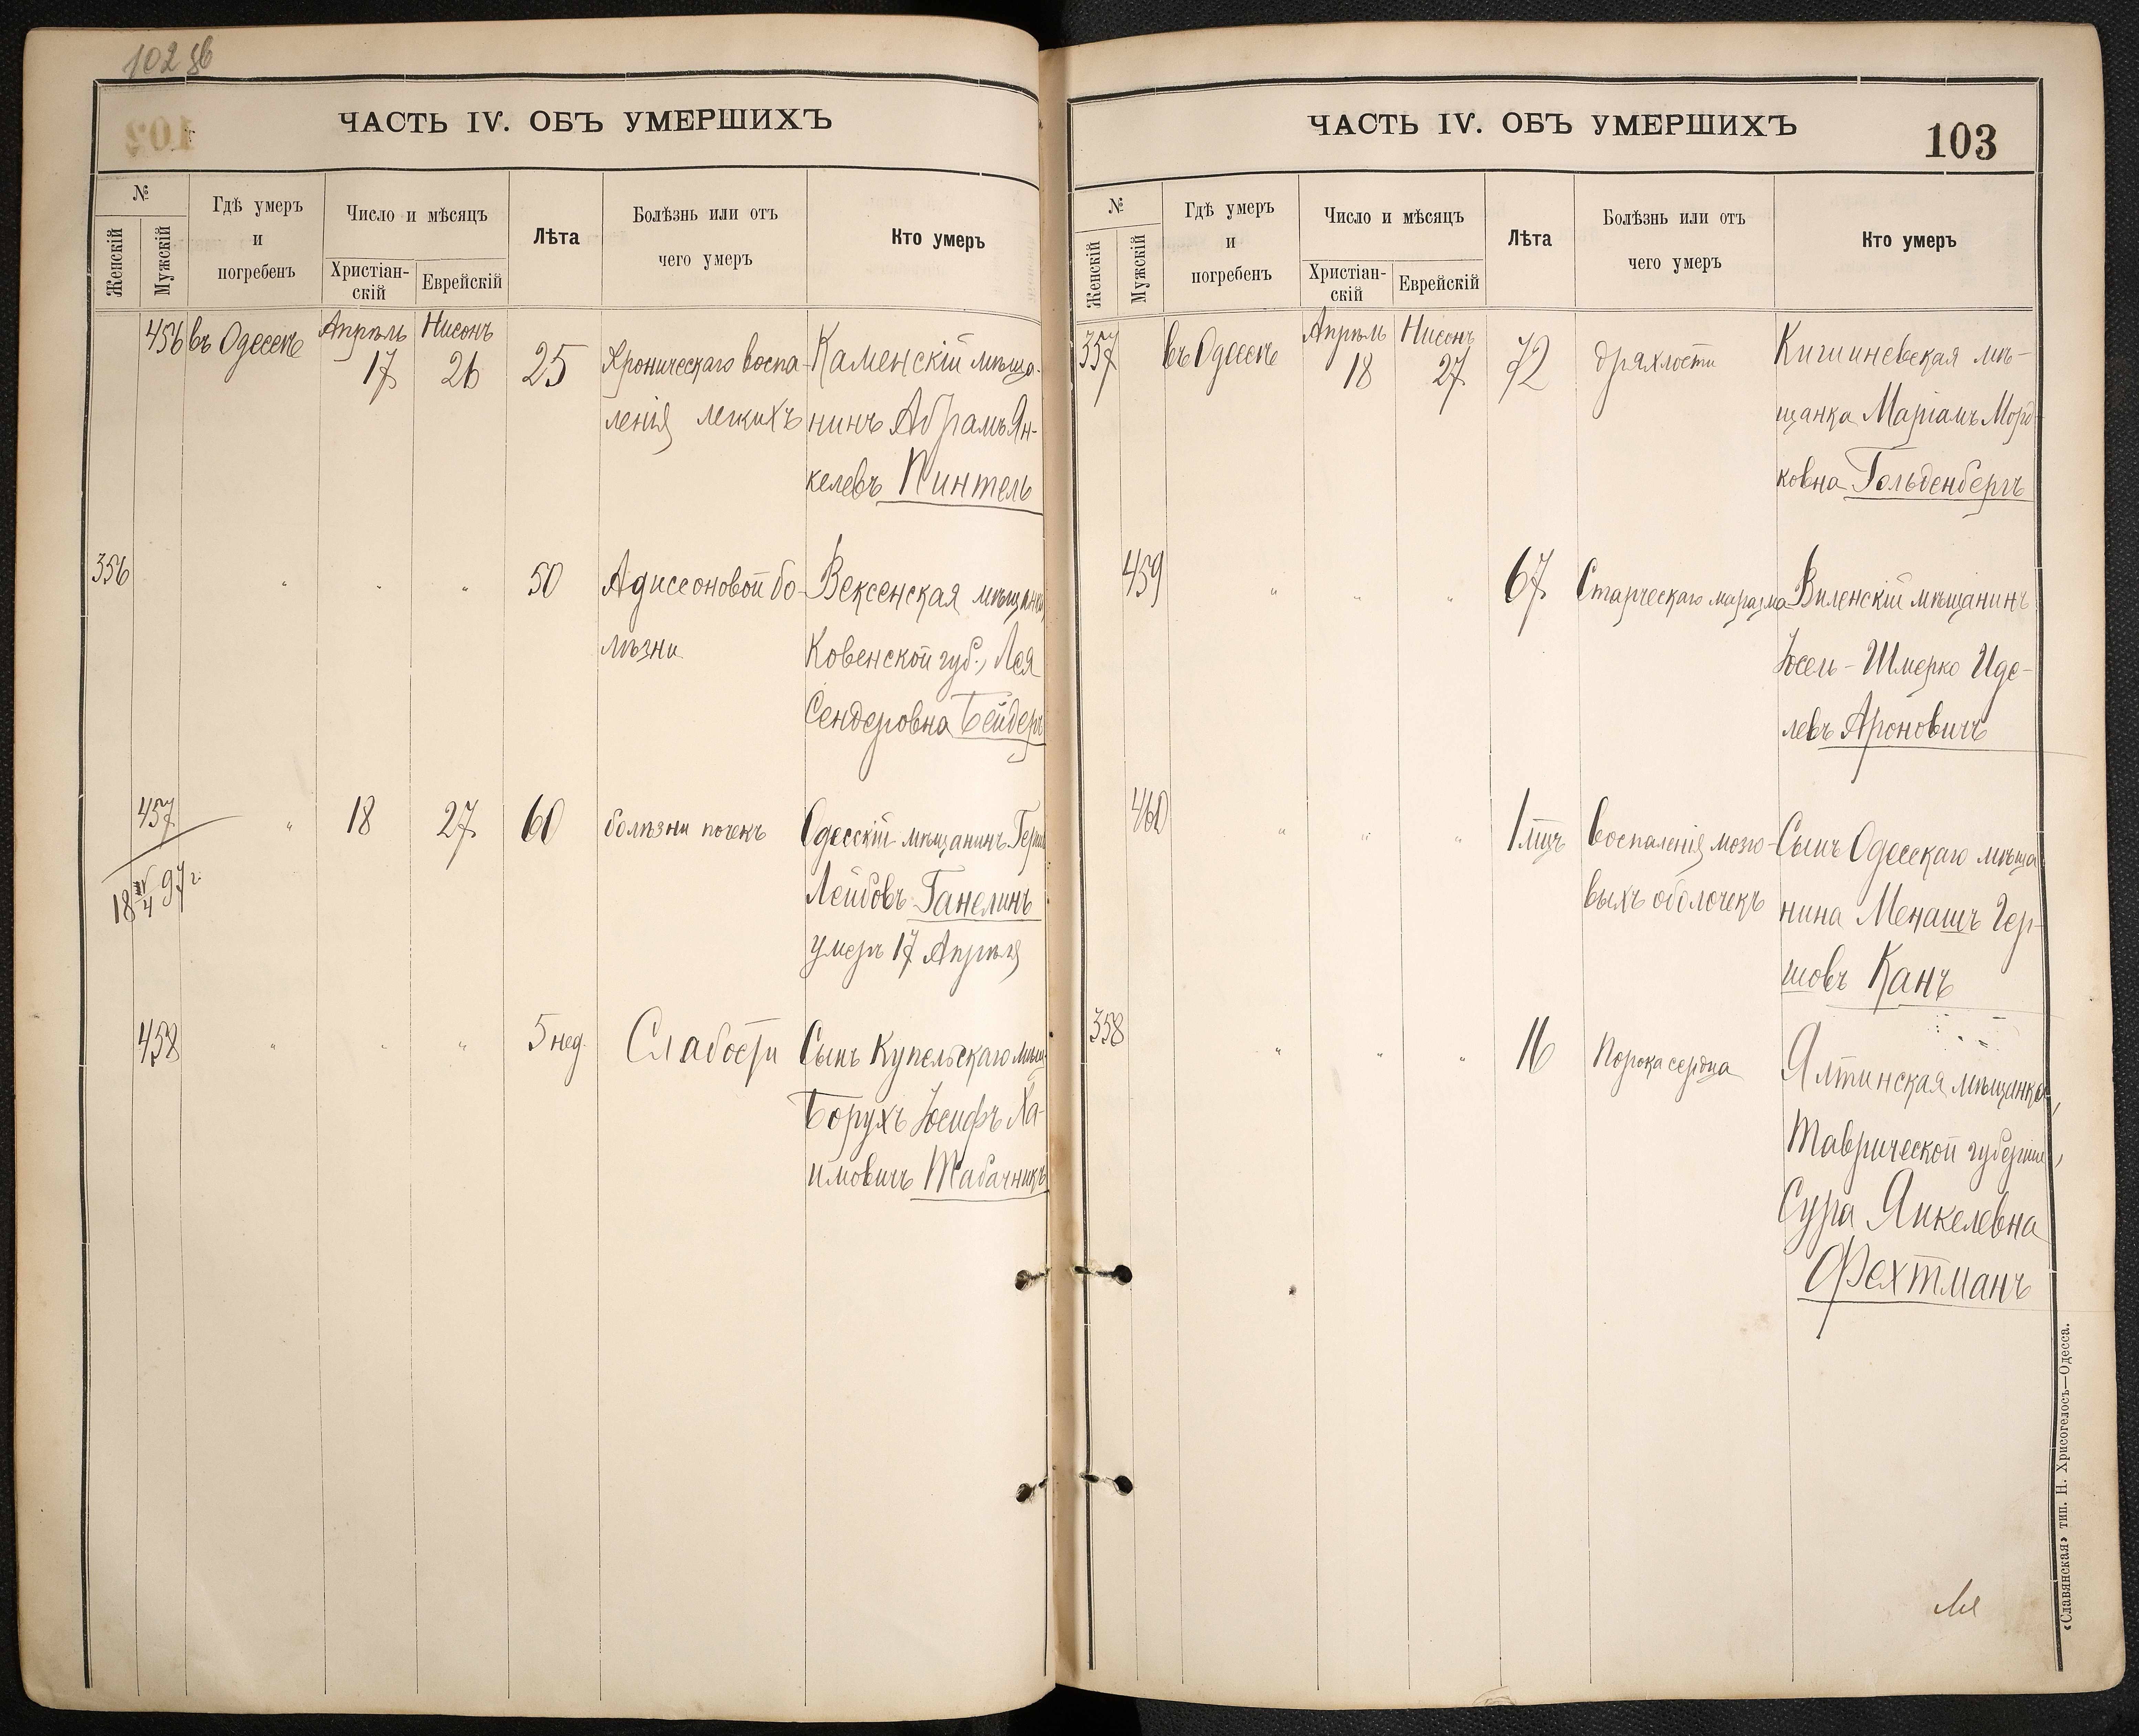 102 об
ЧАСТЬ IV. ОБЪ УМЕРШИХЪ
№
Женскій
Мужскій
Гдѣ умеръ
и
погребенъ
Число и мѣсяцъ
Христіан-
скій
Еврейскій
Лѣта
Болѣзнь или отъ
чего умеръ
Кто умеръ
456 въ Одессѣ Апрѣль 17 Нисонъ 26 25 Хроническаго воспа- Каменскій мѣща-
ленія легкихъ нинъ Абрамъ Ян-
келевъ Пинтель
356 " " " 50 Адиссоновой бо- Вексенская мѣщанка
лѣзни Ковенской губ., Лея
Сендеровна Бейдеръ
457 " 18 27 60 болѣзни почекъ Одесскій мѣщанинъ
18 IV/4 97 г. Лейбовъ Ганелинъ
умеръ 17 Апрѣля
458 " " " 5 нед. Слабости Сынъ Купельскаго мѣщ.
Борухъ Іосифъ Ха-
имовичъ Табачникъ
ЧАСТЬ IV. ОБЪ УМЕРШИХЪ
103
№
Женскій
Мужскій
Гдѣ умеръ
и
погребенъ
Число и мѣсяцъ
Христіан-
скій
Еврейскій
Лѣта
Болѣзнь или отъ
чего умеръ
Кто умеръ
357 въ Одессѣ Апрѣль 18 Нисонъ 27 72 дряхлости Кишиневская мѣ-
щанка Маріамъ Морд-
ковна Гольденбергъ
459 " " " 67 Старческаго маразма Виленскій мѣщанинъ
Іосель-Шмерко Иде-
левъ Ароновичъ
460 " " " 1 мцъ воспаленія мозго- Сынъ Одесскаго мѣща
выхъ оболочекъ нина Менашъ Гер-
шовъ Канъ
358 " " " 16 Порока сердца Ялтинская мѣщанка,
Таврической губерніи,
Сура Янкелевна
Фехтманъ
«Славянская» тип. Н. Хрисогелосъ—Одесса.